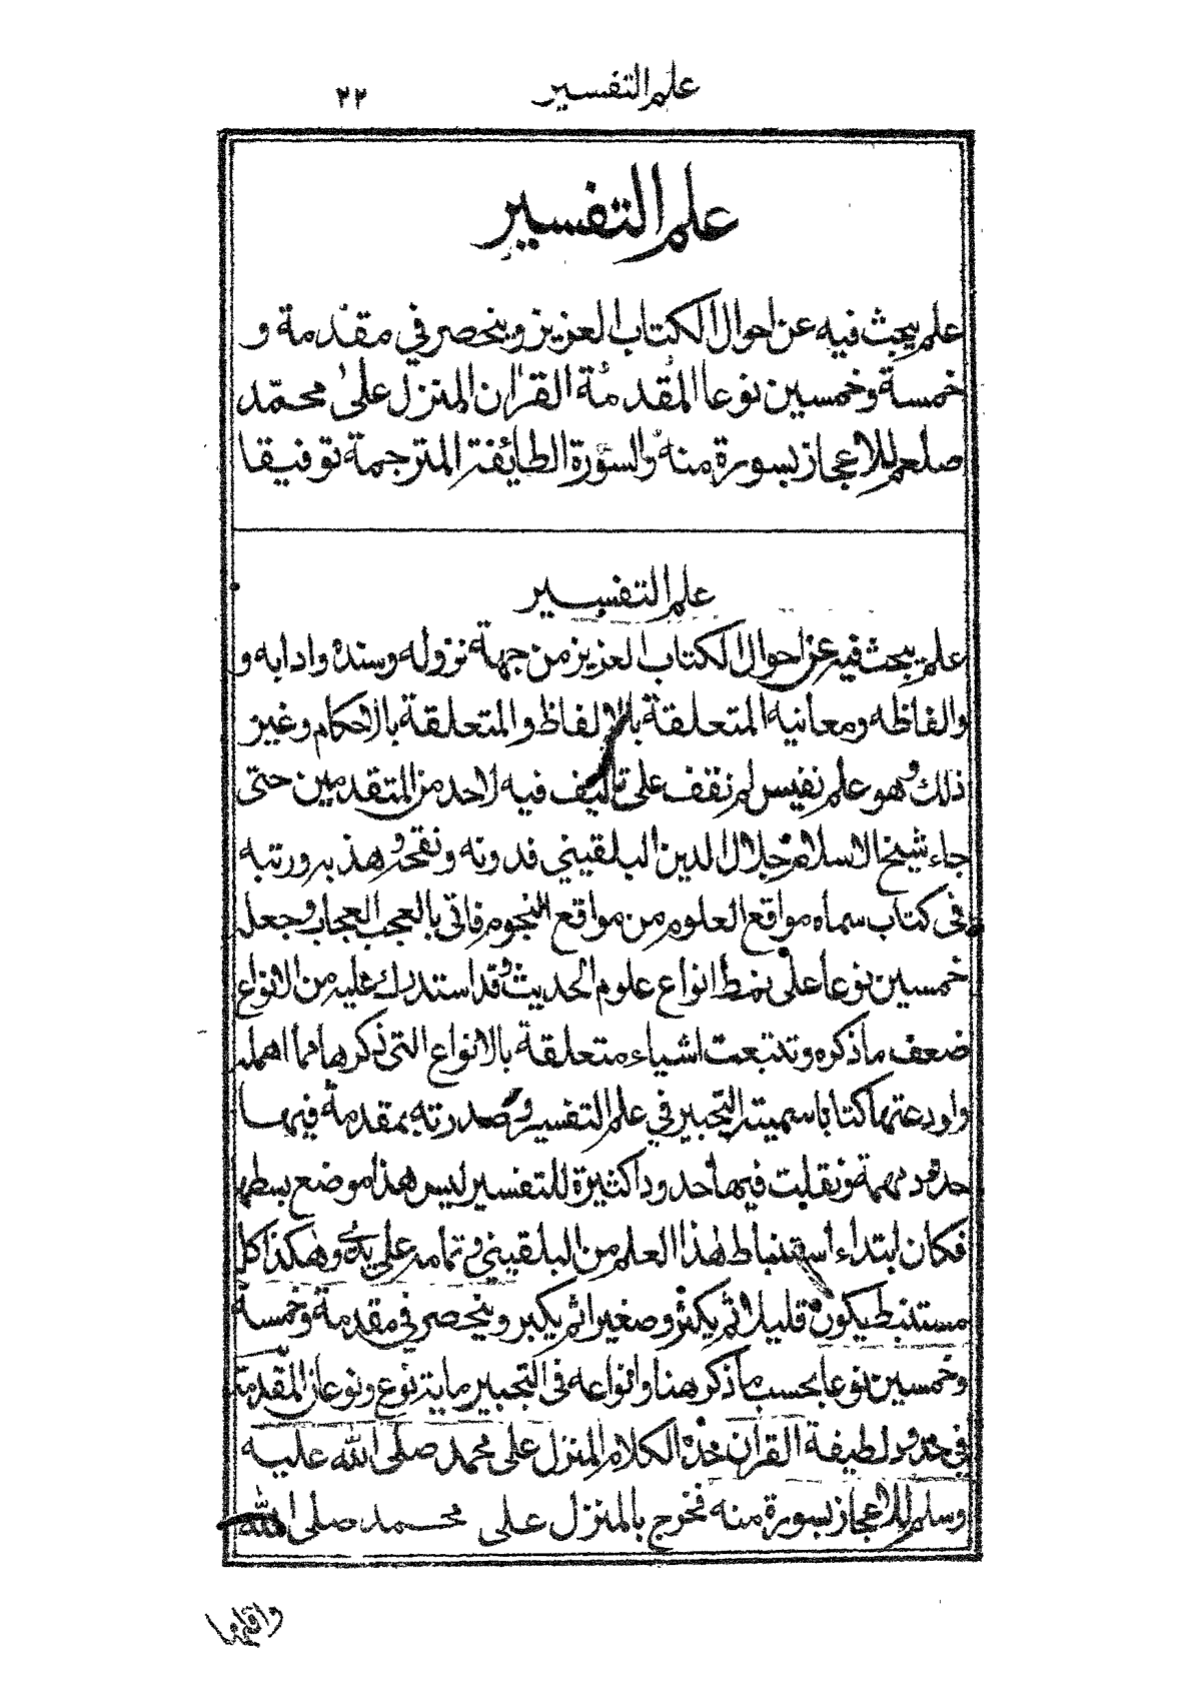 علم التفسير ٢٢
علم التفسير
علم يبحث فيه عن احوال الكتاب العزيز وينحصر في مقدمة و
خمسة وخمسين نوعا المقدمة القران المنزل على محمّد
صلعم للاعجاز بسورة منه والسورة الطائفة المترجمة توفيقا
علم التفسير
علم يبحث فيه عن احوال الكتاب العزيز من جهة نزوله وسنده وادابه و
والفاظه ومعانيه المتعلقة بالالفاظ والمتعلقة بالاحكام وغير
ذلك وهو علم نفيس لم نقف على تاليف فيه لاحد من المتقدمين حتى
جاء شيخ الاسلام جلال الدين البلقيني فدونه ونقحه وهذبه ورتبه
في كتاب سماه مواقع العلوم من مواقع النجوم فاتى بالعجب العجاب وجعله
خمسين نوعا على نمط انواع علوم الحديث وقد استدرك عليه من الانواع
ضعف ما ذكره وتتبعت اشياء متعلقة بالانواع التي ذكرها مما اهمله
واودعتها كتابا سميته التحبير في علم التفسير وصدرته بمقدمة فيها
حدود مهمة ونقلت فيها حدودا كثيرة للتفسير ليس هذا موضع بسطها
فكان ابتداء استنباط هذا العلم من البلقيني وتمامه على يدي وهكذا كل
مستنبط يكون قليلا ثم يكثر وصغيرا ثم يكبر وينحصر في مقدمة وخمسة
وخمسين نوعا بحسب ما ذكر هنا وانواعه في التحبير ماية نوع ونوعان المقدمة
في حدود لطيفة القران حده الكلام المنزل على محمد صلى الله عليه
وسلم للاعجاز بسورة منه فخرج بالمنزل على محمد صلى الله